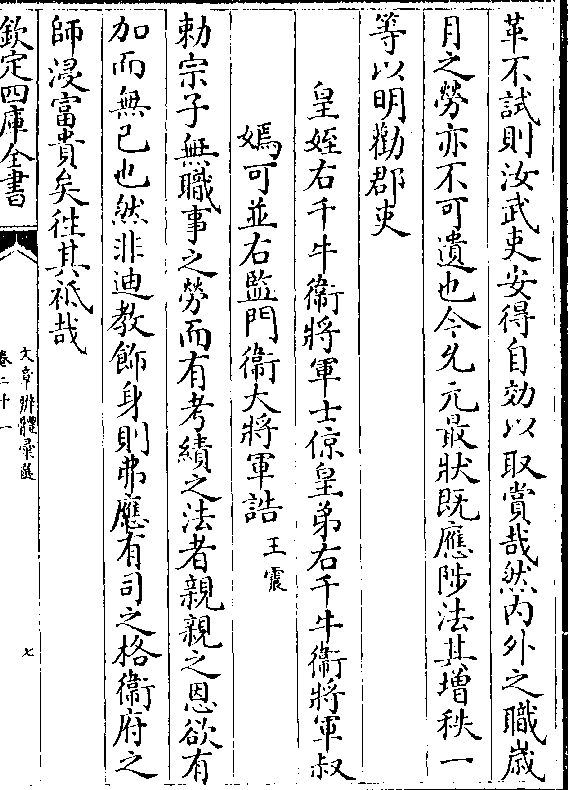 革不試則汝武吏安得自効以取賞哉然内外之職歳
月之勞亦不可遺也今允元最狀既應陟法其增秩一
等以明勸郡吏
皇姪右千牛衞將軍士倞皇弟右千牛衞將軍叔
媯可並右監門衞大將軍誥王震
勅宗子無職事之勞而有考績之法者親親之恩欲有
加而無已也然非迪教飾身則弗應有司之格衞府之
師浸富貴矣徃其祗哉
欽定四庫全書
文章辨體彚選
卷二十一
七